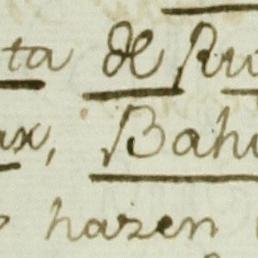 ta de Ru
ax, Bahi
hazen